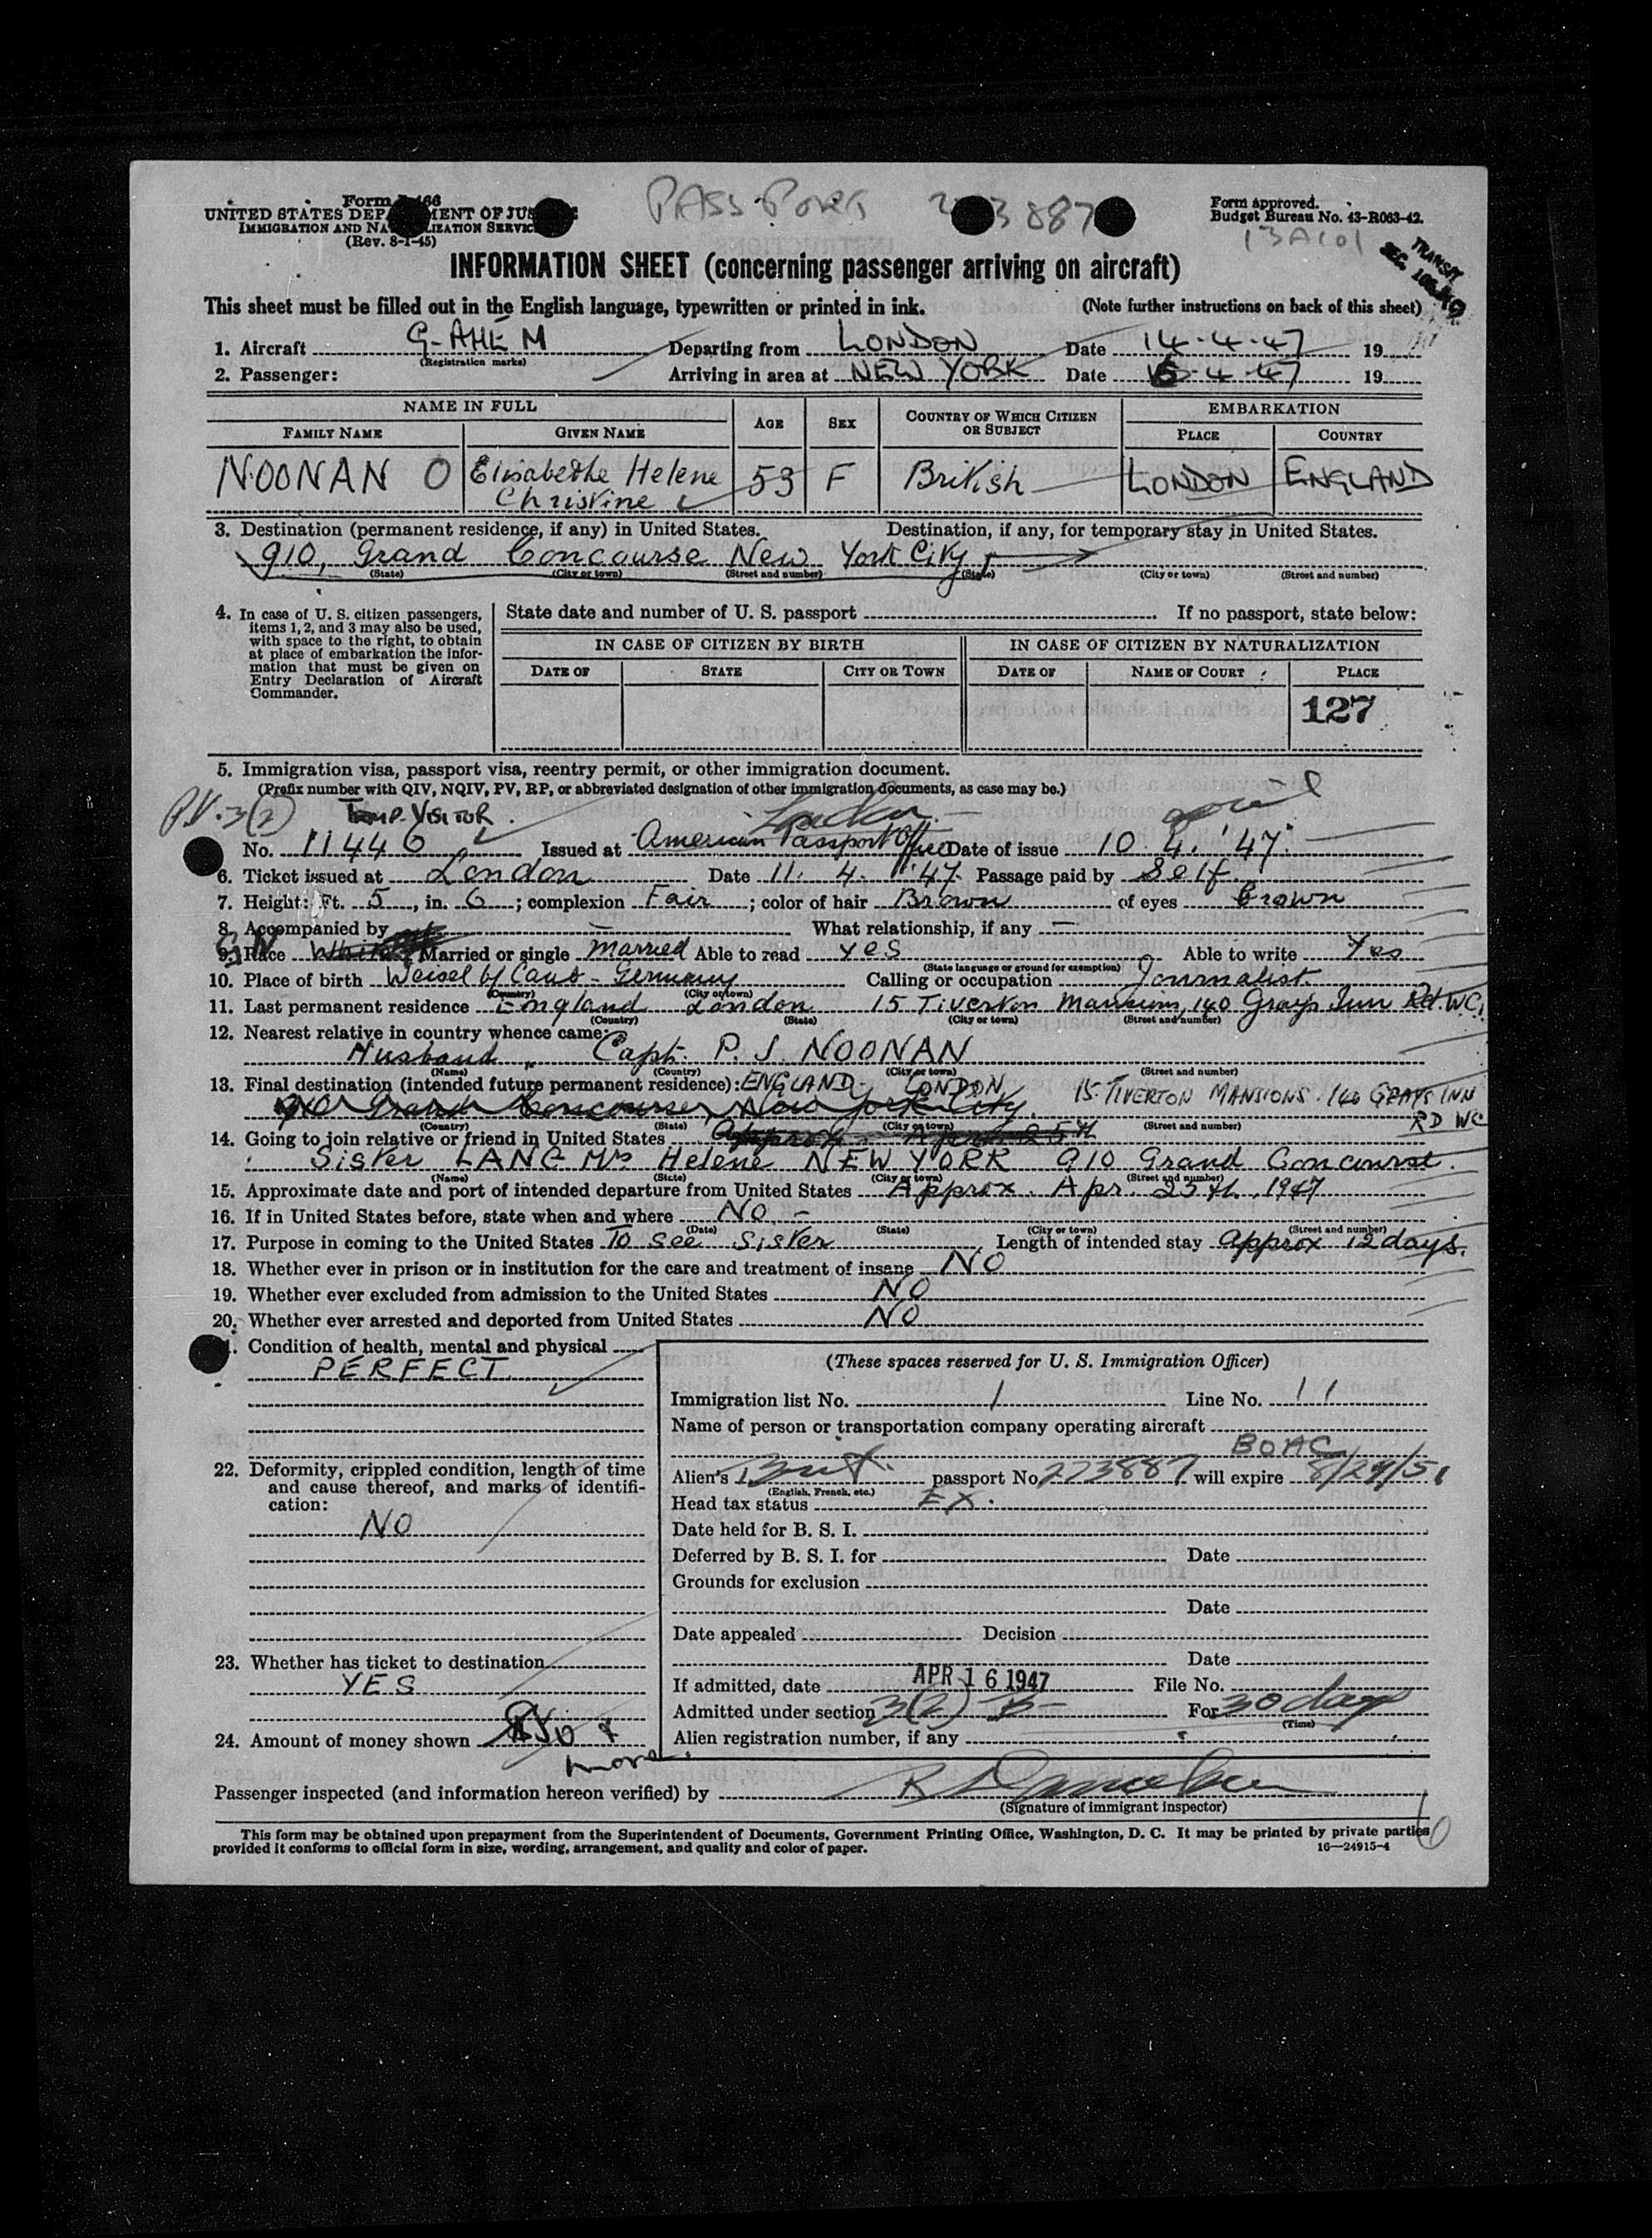 PASSPORT 3887
Form approved.
Budget Bureau No. 43-R063-42.
13A101
TRANSIT
SEC.
(Rev. 8-1-45)
INFORMATION SHEET (concerning passenger arriving on aircraft)
This sheet must be filled out in the English language, typewritten or printed in ink. (Note further instructions on back of this sheet)
1. Aircraft G-AHEM Departing from LONDON Date 14.4.47 19
(Registration marks)
2. Passenger: Arriving in area at NEW YORK Date 16.4.47 19
NAME IN FULL AGE SEX COUNTRY OF WHICH CITIZEN OR SUBJECT EMBARKATION
FAMILY NAME GIVEN NAME PLACE COUNTRY
NOONAN O Elisabethe Helene 53 F British LONDON ENGLAND
Christine
3. Destination (permanent residence, if any) in United States. Destination, if any, for temporary stay in United States.
910, Grand Concourse New York City
(State) (City or town) (Street and number) (State) (City or town) (Street and number)
4. In case of U. S. citizen passengers, items 1, 2, and 3 may also be used, with space to the right, to obtain at place of embarkation the information that must be given on Entry Declaration of Aircraft Commander.
State date and number of U. S. passport If no passport, state below:
IN CASE OF CITIZEN BY BIRTH IN CASE OF CITIZEN BY NATURALIZATION
DATE OF STATE CITY OR TOWN DATE OF NAME OF COURT PLACE
127
5. Immigration visa, passport visa, reentry permit, or other immigration document.
(Prefix number with QIV, NQIV, PV, RP, or abbreviated designation of other immigration documents, as case may be.)
P.V. 3(2) TEMP. VISITOR London
No. 11446 Issued at American Passport Office Date of issue 10.4.'47.
6. Ticket issued at London Date 11.4.'47. Passage paid by Self.
7. Height: Ft. 5, in. 6; complexion Fair; color of hair Brown of eyes brown
8. Accompanied by What relationship, if any —
9. Race White Married or single Married Able to read yes Able to write Yes
(State language or ground for exemption)
10. Place of birth Germany Calling or occupation Journalist.
(Country) (City or town)
11. Last permanent residence England London 15 Tiverton Mansions, 140 Grays Inn Rd. W.C.1
(Country) (State) (City or town) (Street and number)
12. Nearest relative in country whence came:
Husband, Capt. P. J. NOONAN
(Name) (Country) (City or town) (Street and number)
13. Final destination (intended future permanent residence): ENGLAND - LONDON
910 Grand Concourse, New York City. 15 TIVERTON MANSIONS. 140 GRAYS INN RD WC
(Country) (State) (City or town) (Street and number)
14. Going to join relative or friend in United States Approx. April 25th
Sister LANG Mrs Helene NEW YORK 910 Grand Concourse.
(Name) (State) (City or town) (Street and number)
15. Approximate date and port of intended departure from United States Approx. Apr. 25th, 1947
16. If in United States before, state when and where No. -
(Date) (State) (City or town) (Street and number)
17. Purpose in coming to the United States To see sister Length of intended stay approx 12 days.
18. Whether ever in prison or in institution for the care and treatment of insane NO
19. Whether ever excluded from admission to the United States NO
20. Whether ever arrested and deported from United States NO
Condition of health, mental and physical
PERFECT.
22. Deformity, crippled condition, length of time and cause thereof, and marks of identification:
NO
23. Whether has ticket to destination
YES
24. Amount of money shown
more.
(These spaces reserved for U. S. Immigration Officer)
Immigration list No. 1 Line No. 11
Name of person or transportation company operating aircraft
BOAC
Alien's Brit. passport No. 273887 will expire 8/29/51
(English, French, etc.)
Head tax status EX.
Date held for B. S. I.
Deferred by B. S. I. for Date
Grounds for exclusion
Date
Date appealed Decision
Date
If admitted, date APR 16 1947 File No.
Admitted under section 3(2) For 30 days
(Time)
Alien registration number, if any
Passenger inspected (and information hereon verified) by
(Signature of immigrant inspector)
This form may be obtained upon prepayment from the Superintendent of Documents, Government Printing Office, Washington, D. C. It may be printed by private parties
provided it conforms to official form in size, wording, arrangement, and quality and color of paper. 16—24915-4